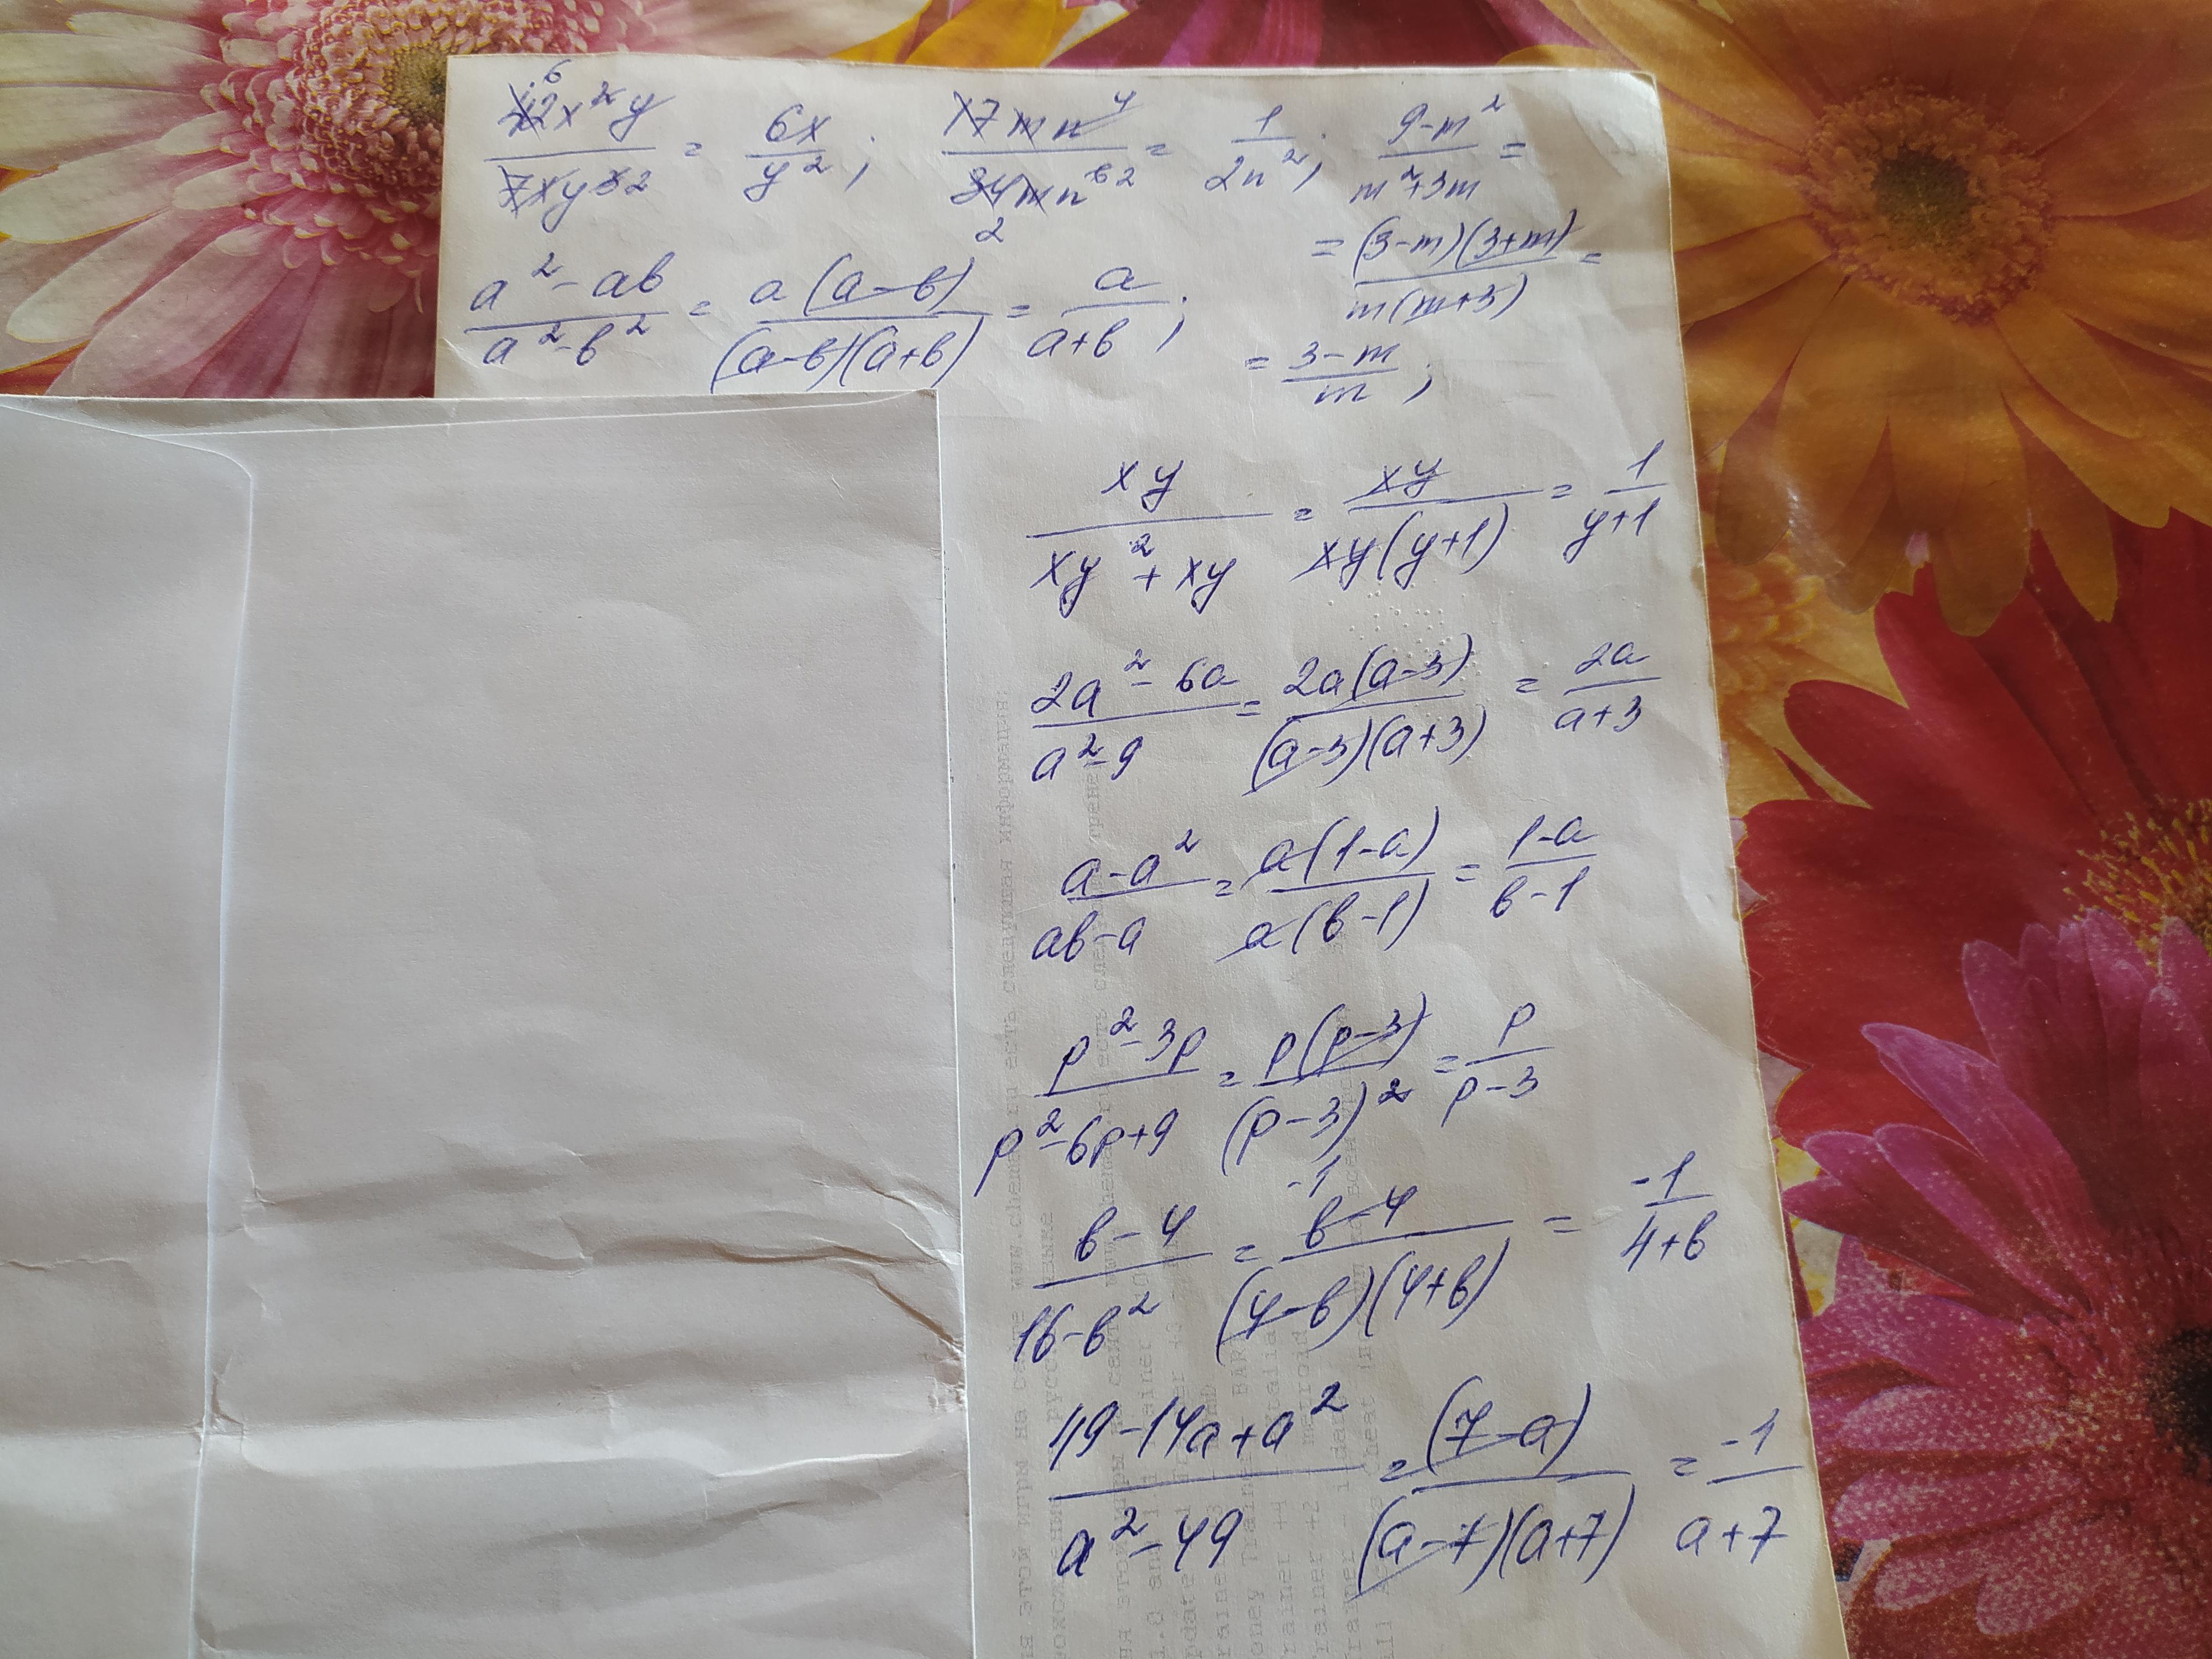 42x²y/7xy³ = 6x/y²; 17mn⁴/34mn⁶ = 1/2n²; 9-m²/m²+3m =
= (3-m)(3+m)/m(m+3) =
a²-ab/a²-b² = a(a-b)/(a-b)(a+b) = a/a+b;
= 3-m/m;
xy/xy²+xy = xy/xy(y+1) = 1/y+1
2a²-6a/a²-9 = 2a(a-3)/(a-3)(a+3) = 2a/a+3
a-a²/ab-a = a(1-a)/a(b-1) = 1-a/b-1
p²-3p/p²-6p+9 = p(p-3)/(p-3)² = p/p-3
b-4/16-b² = b-4/(4-b)(4+b) = -1/4+b
49-14a+a²/a²-49 = (7-a)/(a-7)(a+7) = -1/a+7